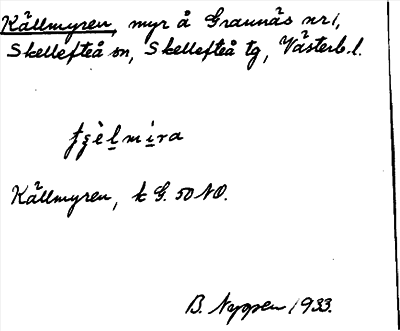 Källmyren, myr å Grannäs nr 1,
Skellefteå sn, Skellefteå tg, Västerb. l.
Källmyren, k G. 50 NO.
B. Nyggen 1933.